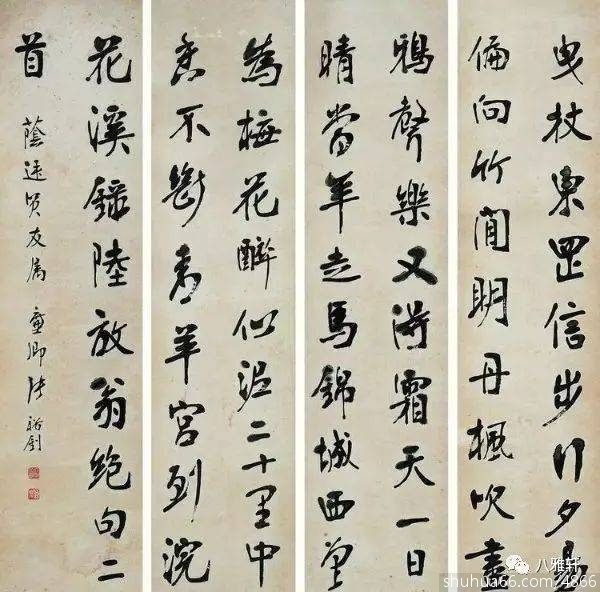 曳杖東岡信步行夕昜
偏向竹間明丹楓吹盡
鴉聲樂又得霜天一日
晴當年走馬錦城西曾
為梅花醉似泥二十里中
香不斷青羊宮到浣
花溪錄陸放翁絕句二
首 蔭遠賢友屬 廉卿張裕釗
八雅轩
shuhua66.com/4866